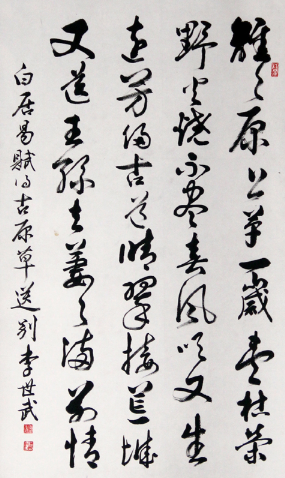 離々原上草一歲壹枯榮
野火燒不盡春風吹又生
遠芳侵古道晴翠接荒城
又送王孫去萋々滿別情
白居易賦得古原草送别 李世武